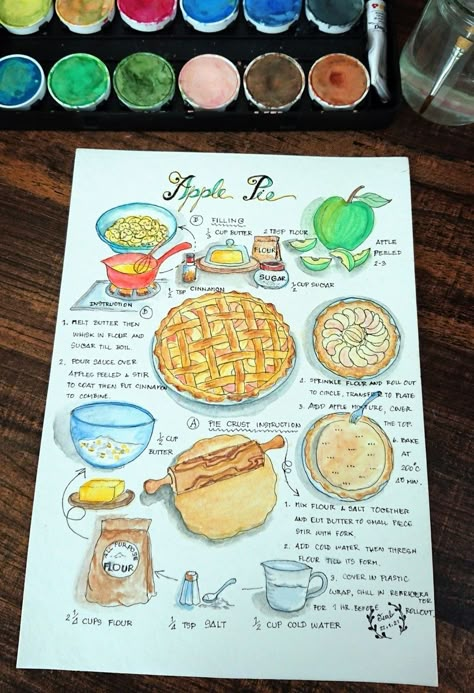 Apple Pie
B FILLING
1/3 CUP BUTTER
2 TBSP FLOUR
FLOUR
SUGAR
APPLE
PEELED
2-3
1/2 TSP CINNAMON
1/2 CUP SUGAR
INSTRUCTION B
1. MELT BUTTER THEN
WHISK IN FLOUR AND
SUGAR TILL BOIL.
2. POUR SAUCE OVER
APPLES PEELED & STIR
TO COAT THEN PUT CINNAMON
TO COMBINE.
4. SPRINKLE FLOUR AND ROLL OUT
TO CIRCLE, TRANSFER TO PLATE
5. ADD APPLE MIXTURE, COVER
THE TOP.
6. BAKE
AT
200°C
45 MIN.
A PIE CRUST INSTRUCTION
1/2 CUP
BUTTER
1. MIX FLOUR & SALT TOGETHER
AND CUT BUTTER TO SMALL PIECE
STIR WITH FORK.
2. ADD COLD WATER THEM THROUGH
FLOUR TILL ITS FORM.
3. COVER IN PLASTIC
WRAP, CHILL IN REFRIGERATER
FOR 1 HR. BEFORE ROLLOUT
ALL PURPOSE
FLOUR
2 1/4 CUPS FLOUR
1/4 TSP SALT
1/2 CUP COLD WATER